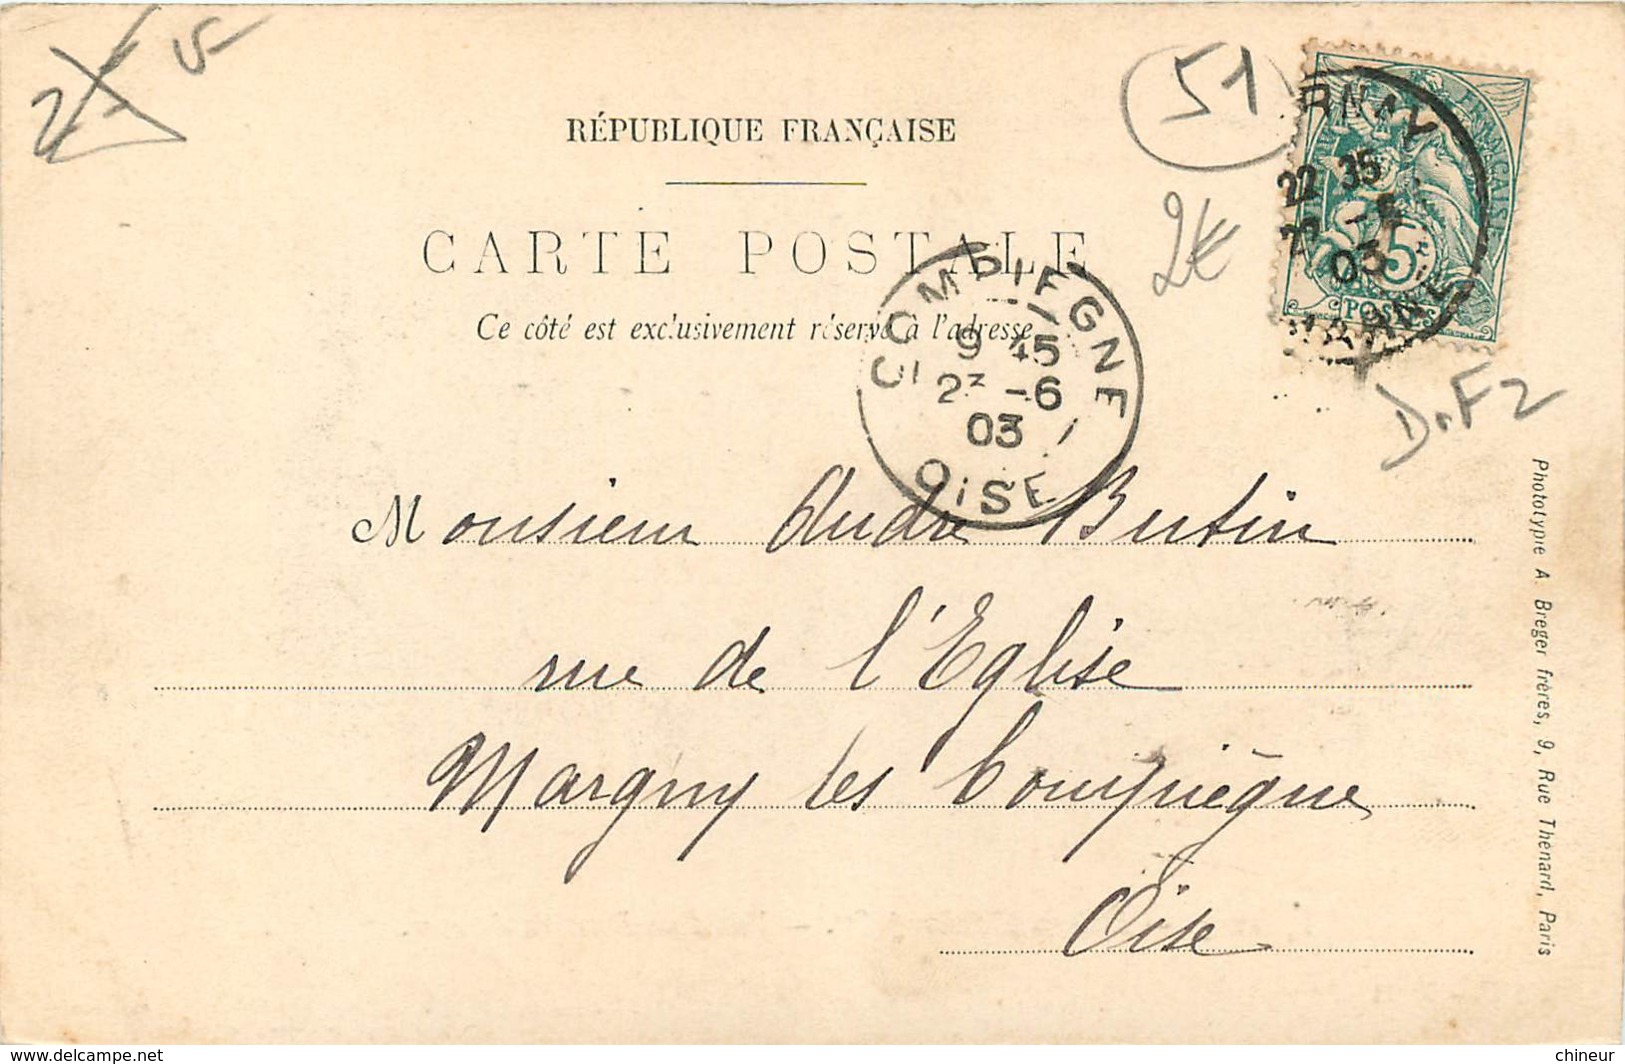 2
5
51
RÉPUBLIQUE FRANÇAISE
2€
CARTE POSTALE
Ce côté est exclusivement réservé à l'adresse
RNAY
22 35
-6
03
MARNE
FRANÇAISE
5
POSTES
COMPIEGNE
9 45
23 -6
03
OISE
D.F2
Monsieur André Butin
rue de l'Eglise
Margny les Compiègne
Oise
Phototypie A Breger frères, 9, Rue Thenard, Paris
www.delcampe.net
chineur